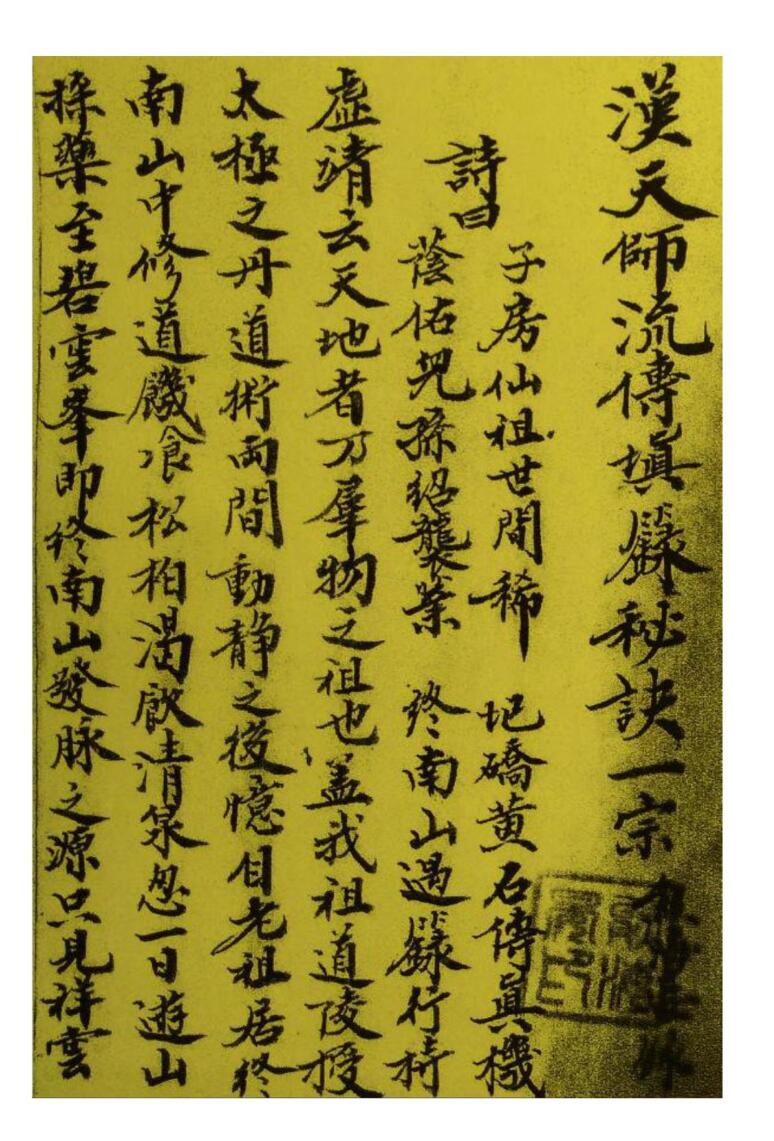 漢天師流傳填籙秘訣一宗
詩曰
子房仙祖世間稀 圯礄黄石傳真機
蔭佑児孫紹襲業 终南山遇籙行持
虚靖云天地者乃羣物之祖也盖我祖道陵授
太極之丹道術両間動静之後憶自老祖居终
南山中修道饑飡松柏渴飲清泉忽一日遊山
採藥至碧雲峯即终南山發脉之源只見祥雲